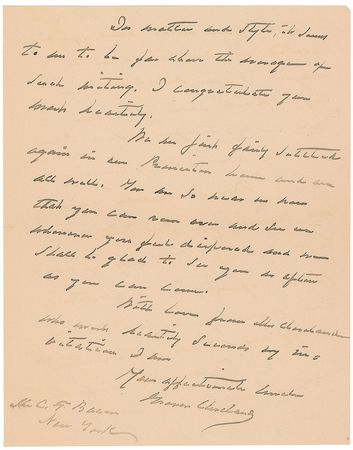 In matter and style, it seems
to me to be far above the average of
such writing. I congratulate you
most heartily.
We are just fairly settled
again in our Princeton home and are
all well. You are so near us now
that you can run over and see us
whenever you feel disposed and we
shall be glad to see you as often
as you can come.
With love from Mrs Cleveland
who most heartily seconds my in-
vitation I am
Your affectionate uncle
Grover Cleveland
Mr C. F. Bacon
New York